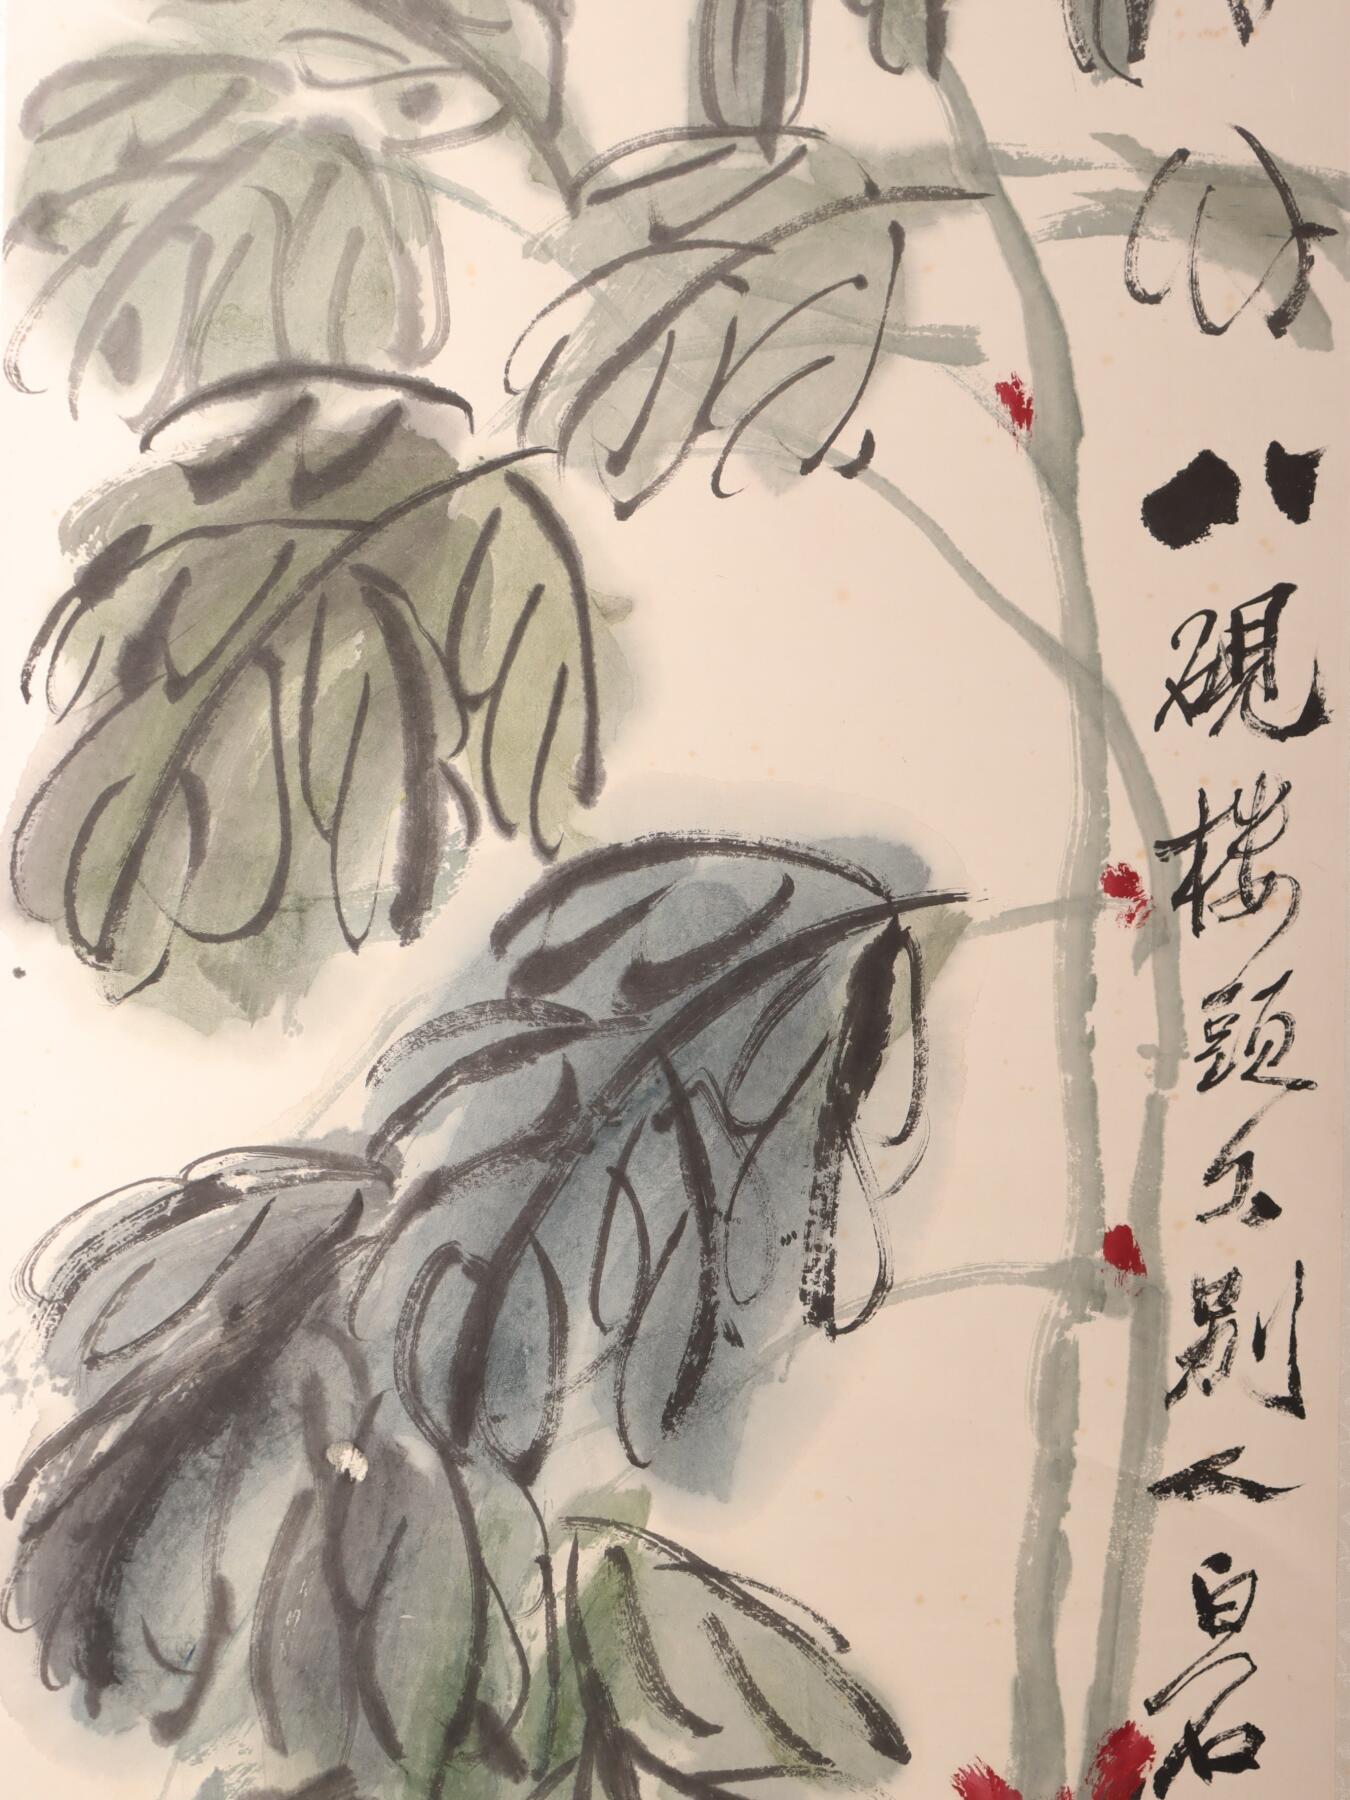 八硯樓頭久別人白石